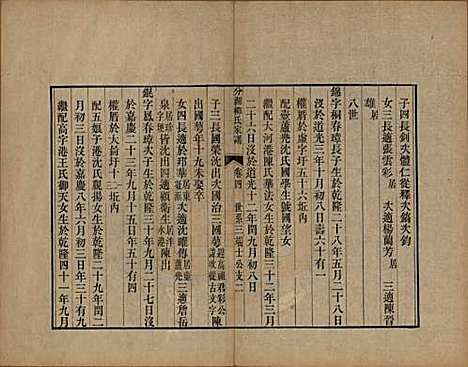 子四長釗次體仁從釋次鎬次鈞
女三長適張雲彩居 次適楊蘭芳居 三適陳晉
雄居
八世
錦字桐春璋長子生於乾隆二十八年五月二十八日
沒於道光三年十月初八日壽六十有一
權厝於虛字圩五十六坵內
配壺蘆兜沈氏國學生號國望女
繼配大河港陳氏華法女生於乾隆三十二年十月初
二十六日沒於道光十二年閏九月初八日
分湖柳氏家譜 卷四 世系三端士公支 二
子三長國榮沈出次國治三國菊
出國菊年十九未娶卒
女四長適於珥華居東 次適沈曜傳居蘆 三適詹岳
泉居 皆沈出四適 陳出
錕字鳳春璋次子生於乾隆三十年九月二十七日沒
於嘉慶二十三年九月十五日年五十有四
權厝於大媵圩十三坵內
配五娘子港沈氏觀揚女生於乾隆二十九年二
月初三日沒於嘉慶八年六月初三日年三十有九
繼配高字港王氏御天女生於乾隆四十一年九月